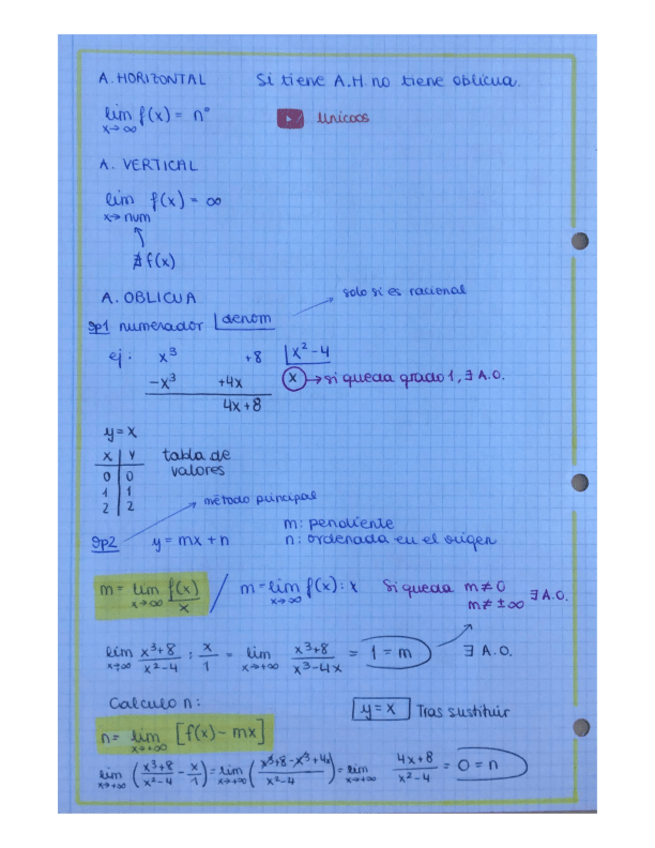 A. HORIZONTAL Si tiene A.H no tiene oblicua.
lim f(x) = nº
x→∞
unicoos
A. VERTICAL
lim f(x) = ∞
x→ num
∄ f(x)
A. OBLICUA
solo si es racional
Op1 numerador | denom
ej: x³ +8 | x² - 4
-x³ +4x x → si queda grado 1, ∃ A.O.
4x + 8
y = x
x | y tabla de
0 | 0 valores
1 | 1
2 | 2
método principal
Op2 y = mx + n
m: pendiente
n: ordenada en el origen
m = lim f(x)/x / m = lim f(x) : x Si queda m ≠ 0 ∃ A.O.
x→∞ x→∞ m ≠ ±∞
lim (x³+8)/(x²-4) : x/1 = lim (x³+8)/(x³-4x) = 1 = m ∃ A.O.
x→∞ x→+∞
Calculo n: y = x Tras sustituir
n = lim [f(x) - mx]
x→+∞
lim ((x³+8)/(x²-4) - x/1) = lim ((x³+8-x³+4x)/(x²-4)) = lim (4x+8)/(x²-4) = 0 = n
x→+∞ x→+∞ x→+∞